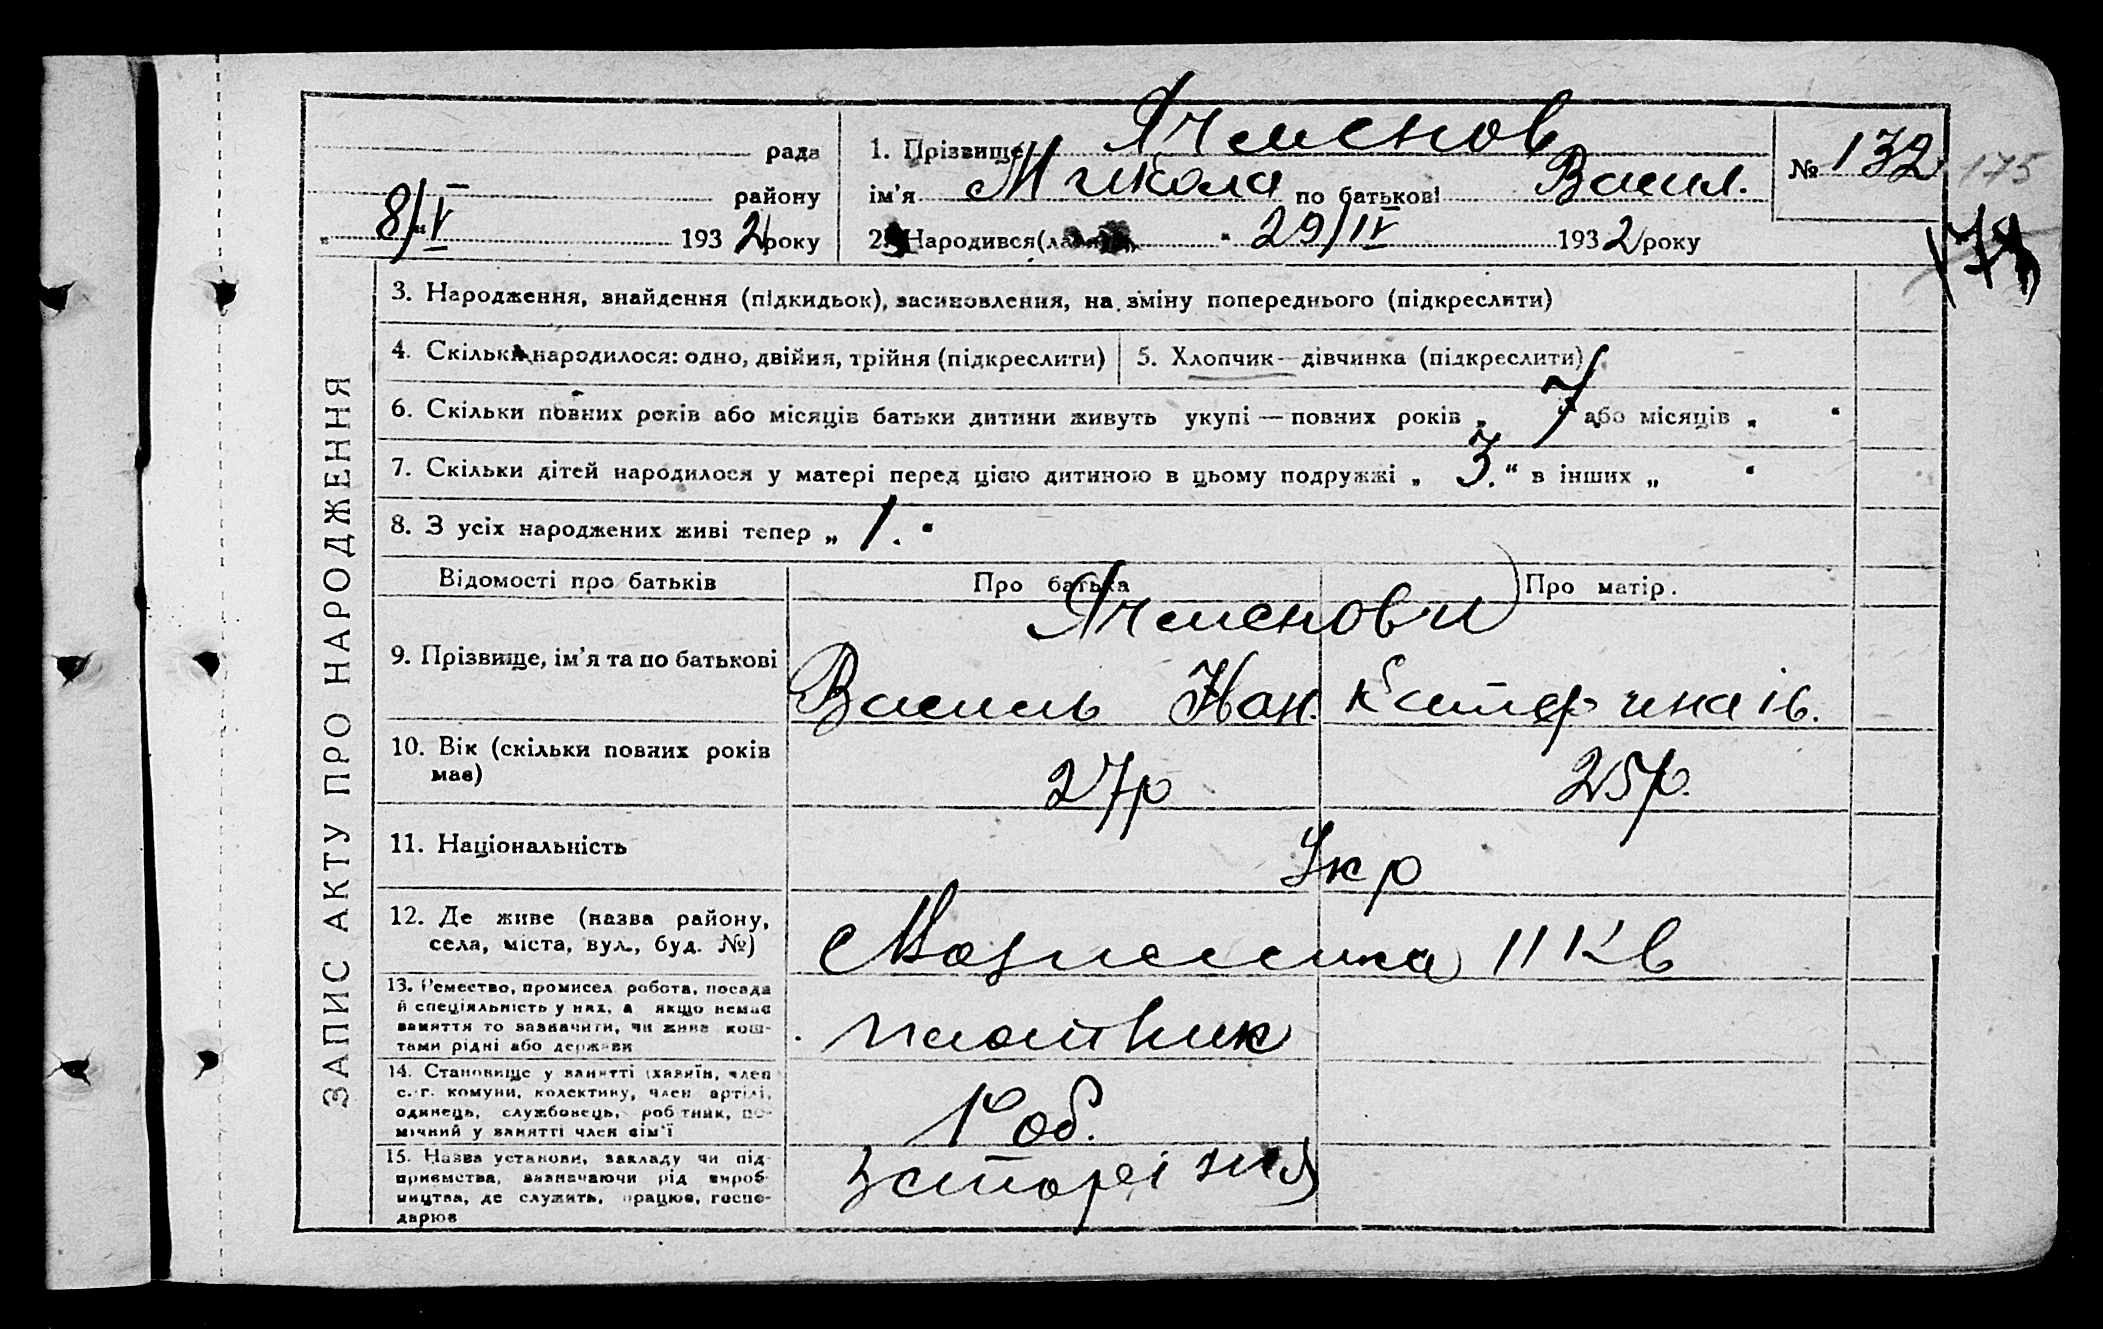 рада
району
8/V 1932 року
1. Прізвище Ячменов
ім’я Микола по батькові Васил.
2. Народився(лася) „ “ 29/IV 1932 року
№ 132
175
ЗАПИС АКТУ ПРО НАРОДЖЕННЯ
3. Народження, знайдення (підкидьок), засиновлення, на зміну попереднього (підкреслити)
4. Скільки народилося: одно, двійня, трійня (підкреслити)
5. Хлопчик—дівчинка (підкреслити)
6. Скільки повних років або місяців батьки дитини живуть укупі — повних років „ 7 або місяців „ “
7. Скільки дітей народилося у матері перед цією дитиною в цьому подружжі „ 3. “ в інших „ “
8. З усіх народжених живі тепер „ 1. “
Відомості про батьків
Про батька
Про матір.
Ячменови
9. Прізвище, ім’я та по батькові
Василь Иван.
Катерина ів.
10. Вік (скільки повних років
має)
27р
25р.
11. Національність
Укр
12. Де живе (назва району,
села, міста, вул., буд. №)
11 Кв
13. Ремество, промисел робота, посада
й спеціяльність у них, а якщо немає
заняття то зазначити, чи живе кош-
тами рідні або держави
плотник
14. Становище у занятті (хазяїн, член
с.-г. комуни, колективу, член артілі,
одинець, службовець, робітник, по-
мічний у занятті член сім’ї
Роб.
15. Назва установи, закладу чи під-
приємства, зазначаючи рід вироб-
ництва, де служить, працює, госпо-
дарює